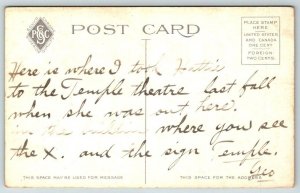 POST CARD
PCSC
PLACE STAMP
HERE
UNITED STATES
AND CANADA
ONE CENT
FOREIGN
TWO CENTS
Here is where I took Hattie
to the Temple theatre last fall
when she was out here.
in the
where you see
the X. and the sign Temple.
Geo
THIS SPACE MAY BE USED FOR MESSAGE
THIS SPACE FOR THE ADDRESS